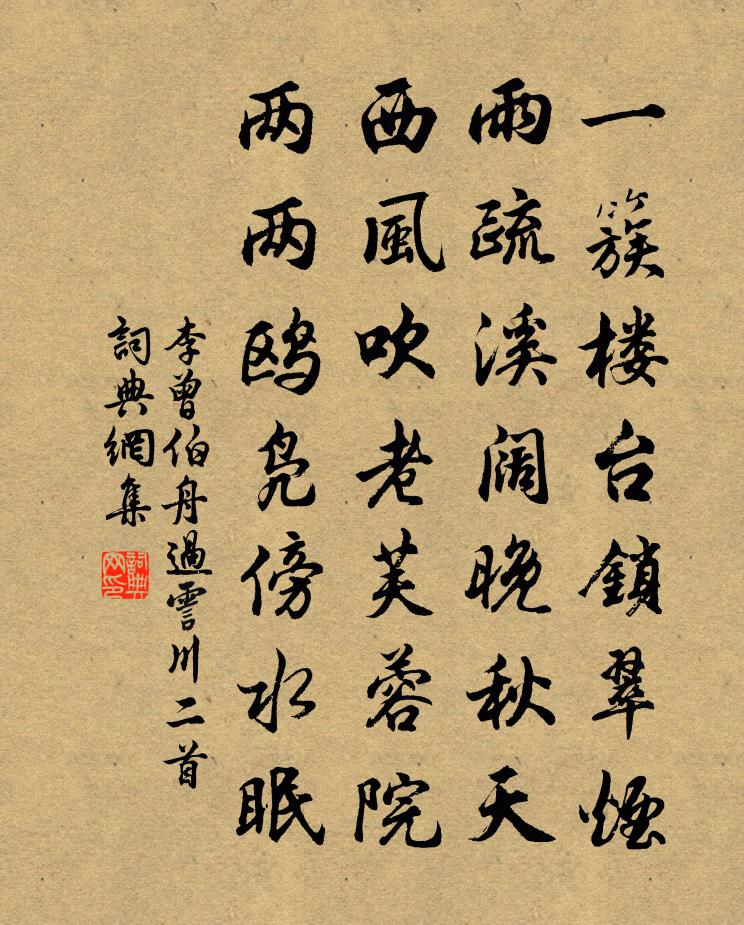 一簇楼台鎖翠煙
雨疏溪阔晚秋天
西風吹老芙蓉院
两两鸥凫傍水眠
李曾伯舟過霅川二首
詞典網集
詞典网印